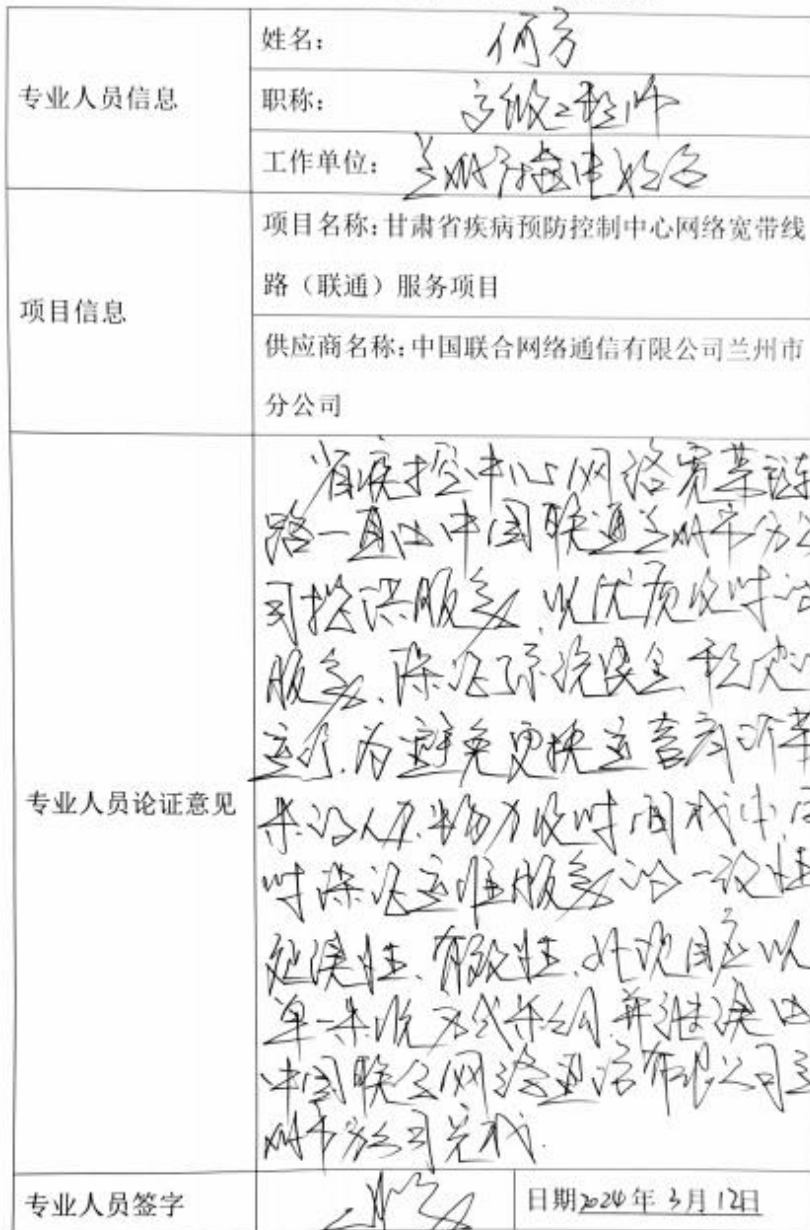 专业人员信息
姓名: 何方
职称: 高级工程师
工作单位: 兰州广播电视台
项目信息
项目名称:甘肃省疾病预防控制中心网络宽带线
路（联通）服务项目
供应商名称:中国联合网络通信有限公司兰州市
分公司
专业人员论证意见
省疾控中心网络宽带链
路一直由中国联通兰州市分公
司提供服务,以优质及时的
服务,保证系统安全、稳定的
运行.为避免更换运营商所带
来的人力.物力及时间成本,同
时保证运维服务的一致性
延续性、有效性.此项目应以
单一来源方式采购,并继续由
中国联合网络通信有限公司兰
州市分公司完成.
专业人员签字
日期2024年3月12日